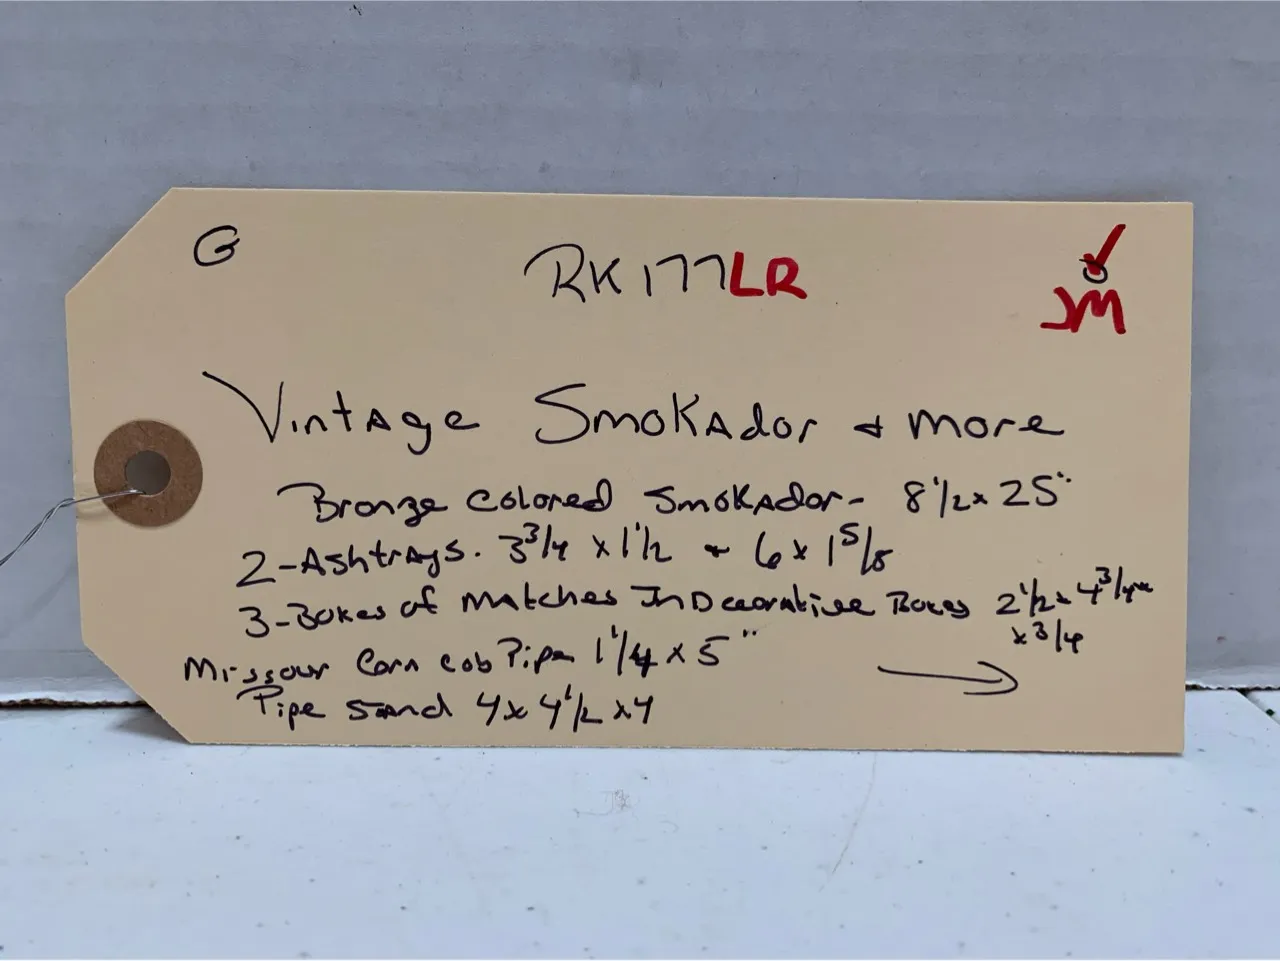 G
RK177LR
JM
Vintage Smokador & more
Bronze colored Smokador- 8 1/2 x 25"
2-Ashtrays. 3 3/4 x 1 1/2 & 6 x 1 5/8
3-Boxes of matches In Decorative Boxes 2 1/2 x 4 3/4
x 3/4
Missour Corn cob Pipe 1 1/4 x 5"
Pipe Stand 4 x 4 1/2 x 4